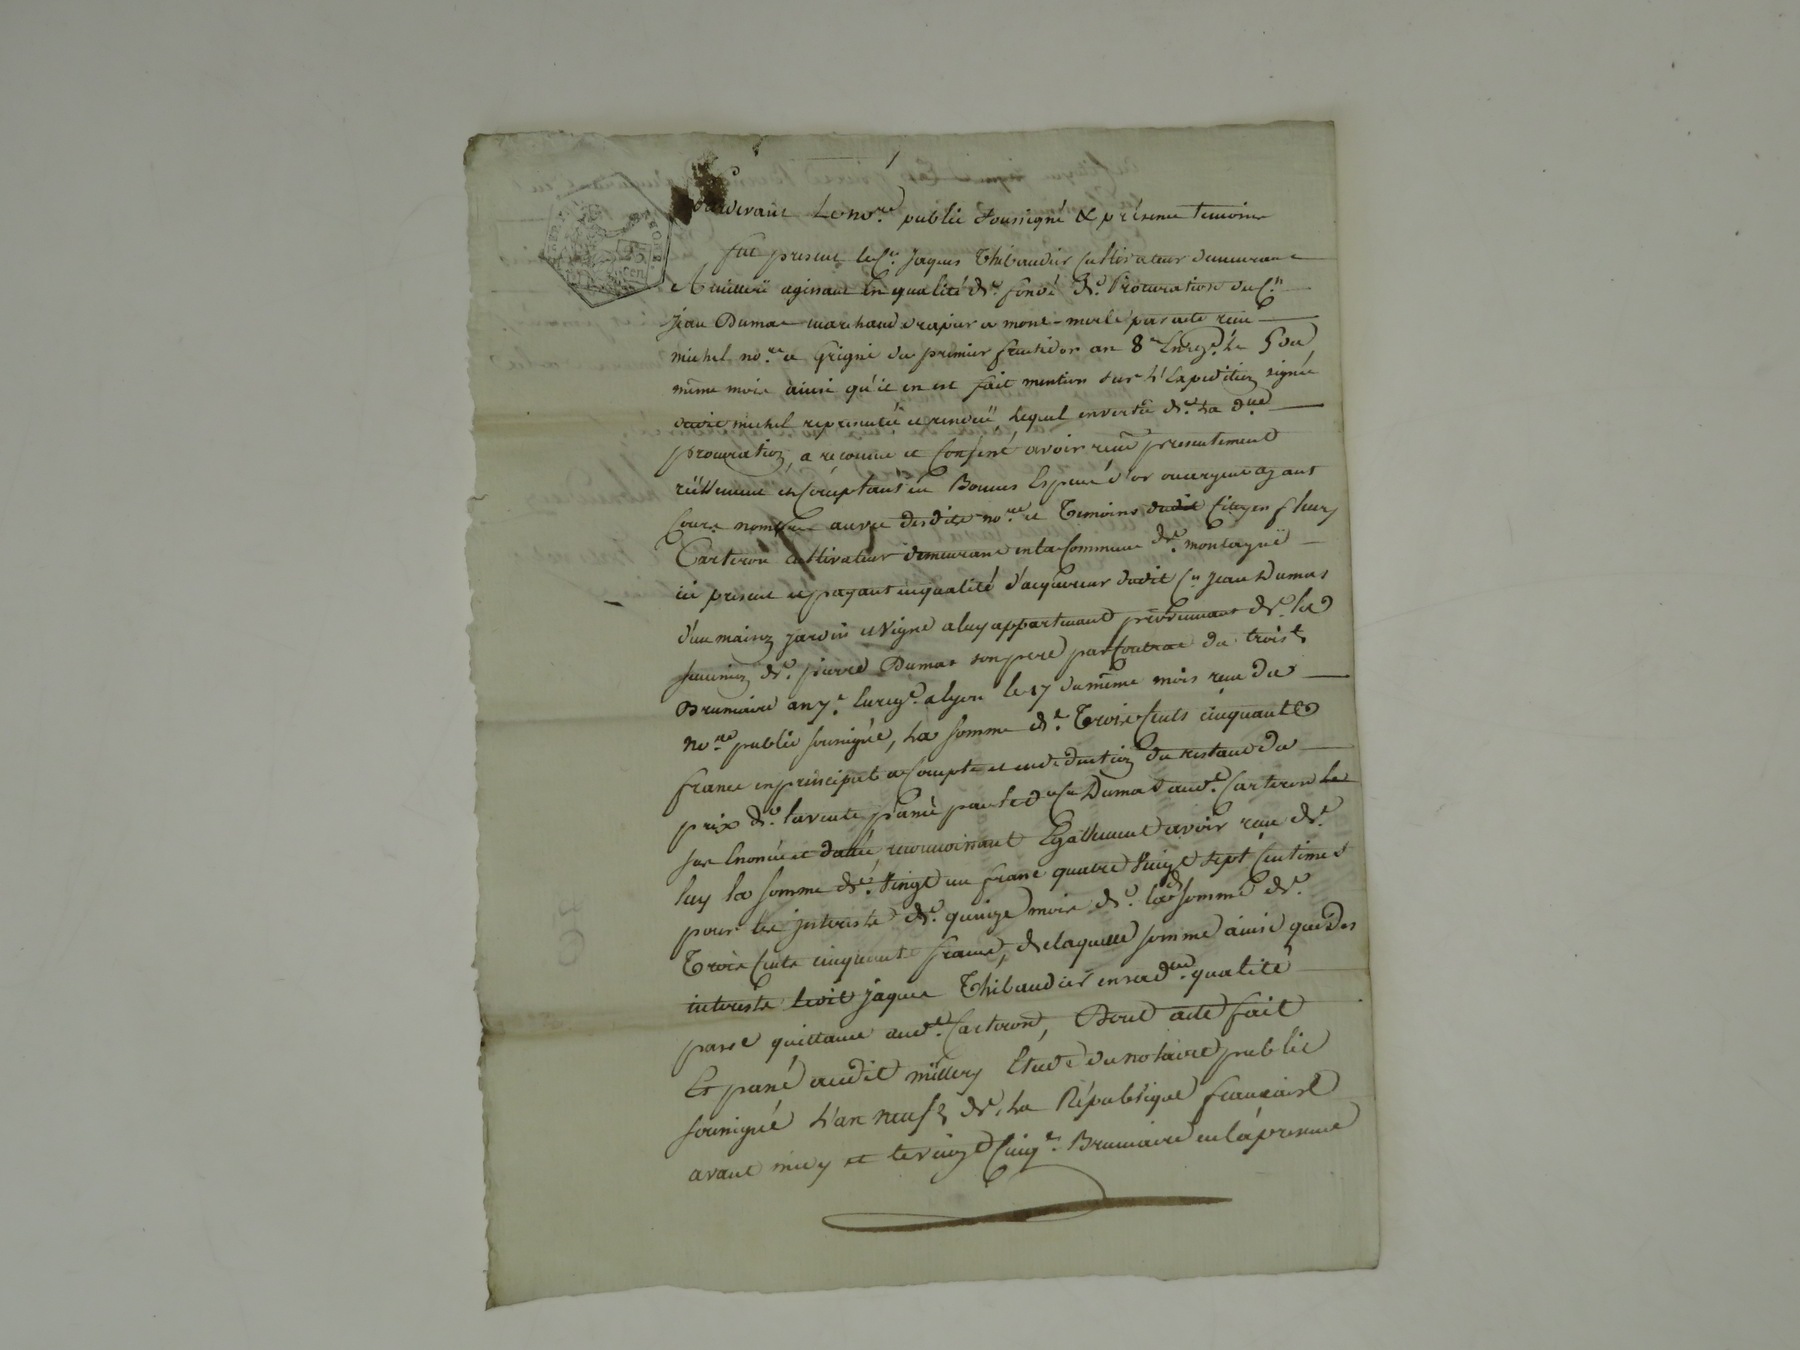 Pardevant le no.re public soussigné & présence temoins
fut present le C.n Jaques Thibaudier cultivateur demeurant
a millerii agissant en qualité de. fondé de. Procuration du C.n
Jean Dumas marchand drapier a mont-merle par acte reçu
michel no.re a Grigni du premier fructidor an 8.e Enreg.é Le 5 du
même mois ainsi qu'il en est fait mention sur L'Expedition signée
dudit michel representée et rendue, Lequel en vertu de. La d.ite
procuration, a reconnu et Confessé avoir reçu presentement
réellement et Comptant en Bonnes Especes d'or ou argent ayant
Cours nombrées au vue desdits no.re et Temoins dudit Citoyen fleury
Carteron cultivateur demeurant en la Commune de. montagnii
ici present et payant en qualité d'acquereur dudit C.n Jean Dumas
d'une maison jardin et Vigne a luy appartenant provenant de. la
succession de. pierre Dumas son pere par Contrat du trois.e
Brumaire an 7.e Enreg.é a lyon le 17 du même mois reçu du
no.re public soussigné, La somme de. Trois Cents cinquante
francs en principal a Compte et en deduction du restant du
prix de. la vente passée par le d. C.n Dumas aud.t Carteron Le
sus Enoncé et datté, reconnoissant Egallement avoir reçu de.
luy la somme de. Vingt un franc quatre Vingt sept Centimes
pour les interests de. quinze mois de. lad. somme de.
Trois Cents cinquante francs, de laquelle somme ainsi que des
interests Ledit jaques Thibaudier en sad.ite qualité
passe quittance aud.t Carteron, Dont acte fait
Et passé audit millery Etude du notaire public
soussigné L'an neuf de. La République francaise
avant midy et le vingt Cinq.e Brumaire en la presence